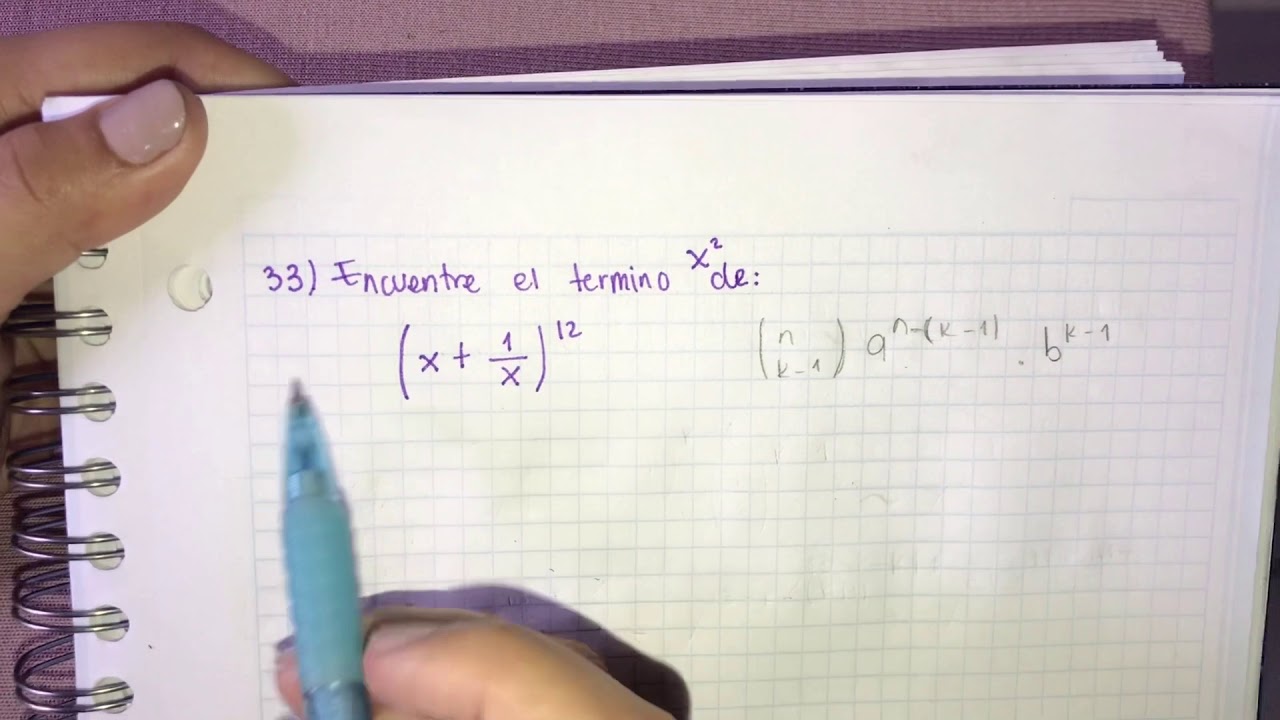 33) Encuentre el termino x² de:
(x + 1/x)^12
(n k-1) a^n-(k-1) . b^k-1